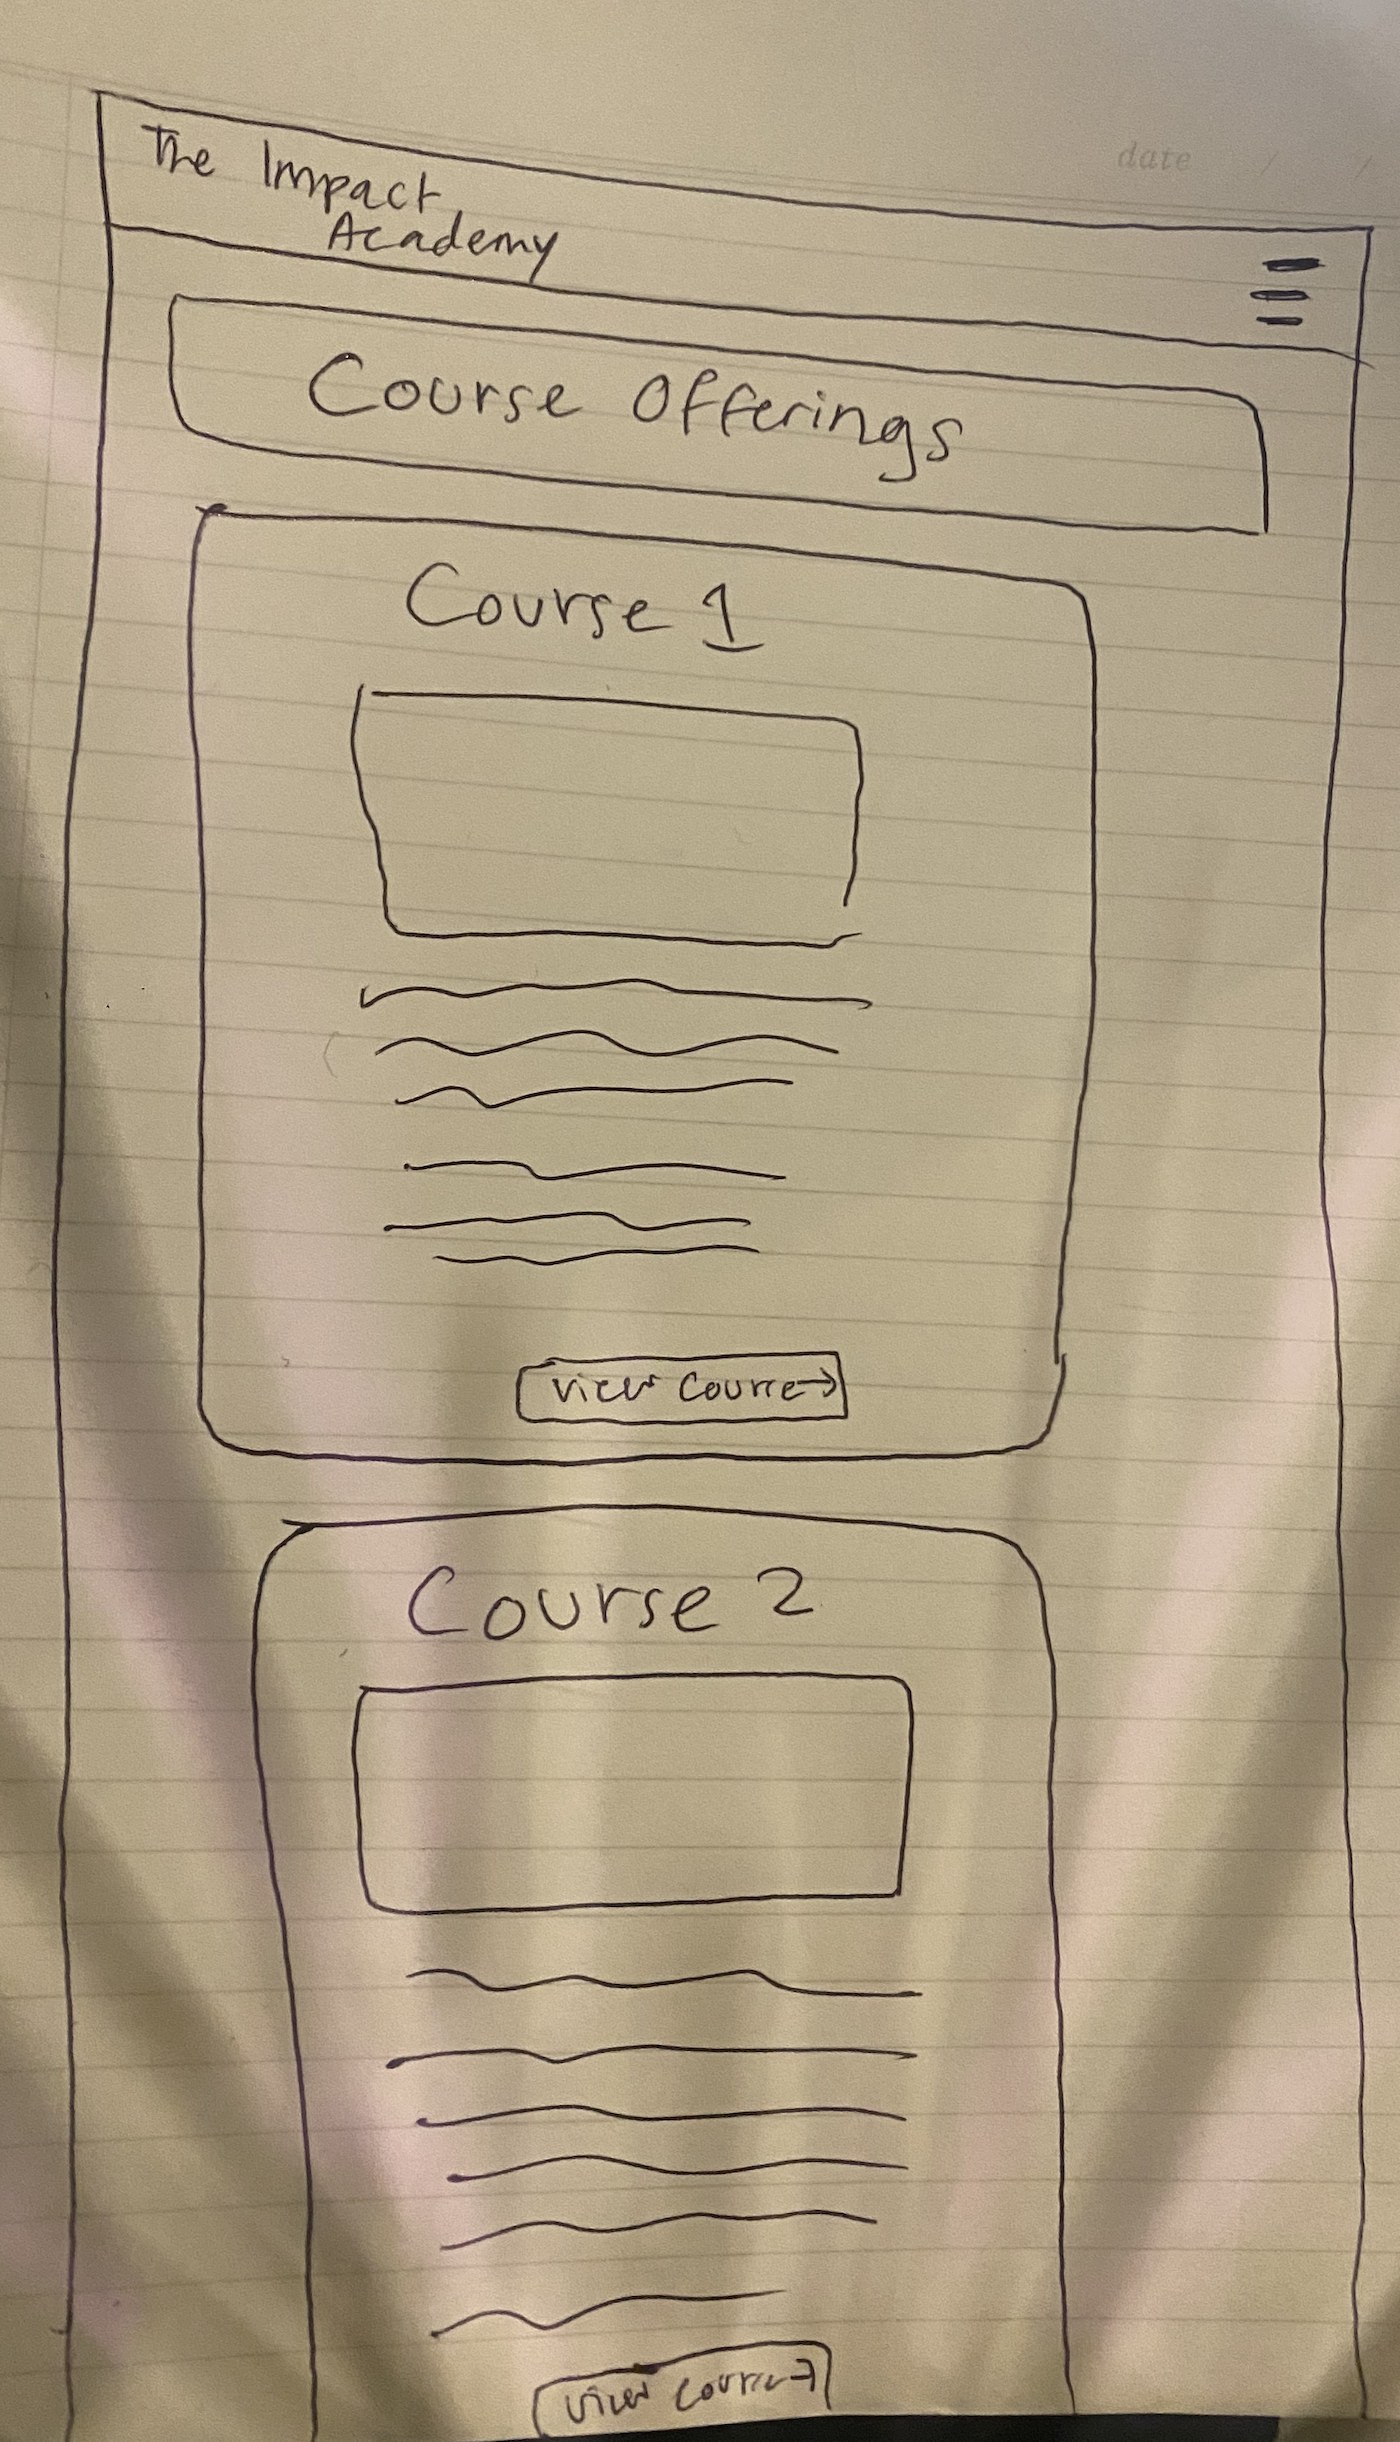 date / /
The Impact
Academy
Course Offerings
Course 1
View Course→
Course 2
View Course→